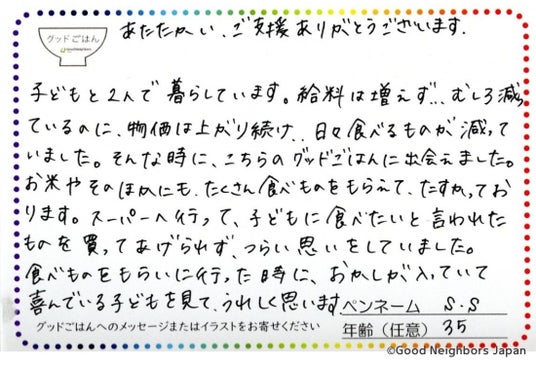 グッドごはん
あたたかい、ご支援ありがとうございます.
子どもと2人で暮らしています。給料は増えず... むしろ減っ
ているのに、物価は上がり続け.. 日々食べるものが減って
いました。そんな時に、こちらのグッドごはんに出会えました。
お米やそのほかにも、たくさん食べものをもらえて、たすかってお
ります。スーパーへ行って、子どもに食べたいと言われた
ものを買ってあげられず、つらい思いをしていました。
食べものをもらいに行った時に、おかしが入っていて
喜んでいる子どもを見て、うれしく思います
ペンネーム S.S
グッドごはんへのメッセージまたはイラストをお寄せください
年齢（任意） 35
©Good Neighbors Japan